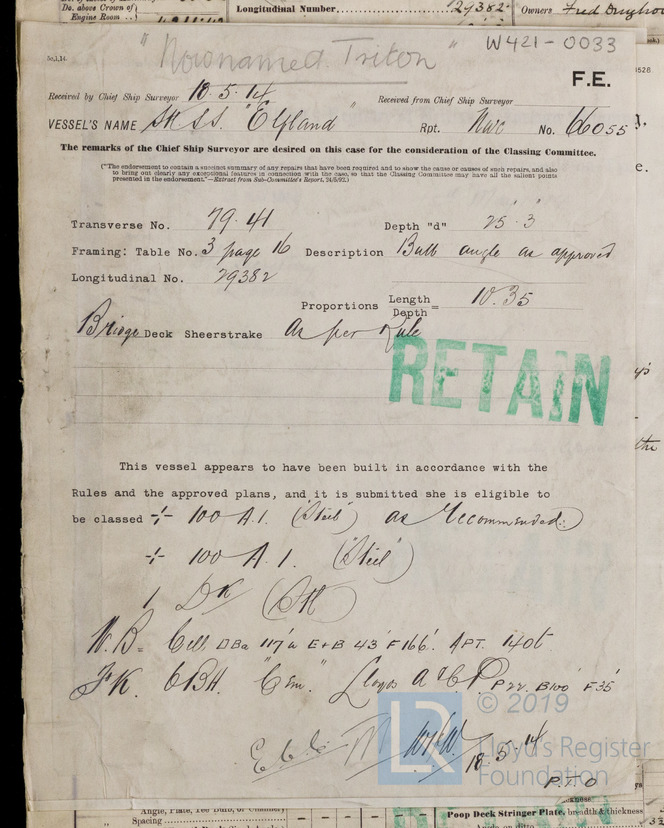 Do. above Crown of
Engine Room
Longitudinal Number
29382
Owners Fred
" Now named Triton "
W421-0033
5c,1,14.
F.E.
Received by Chief Ship Surveyor 18.5.14
Received from Chief Ship Surveyor
VESSEL'S NAME SK SS. "Elfland" Rpt. Nwc No. 66055
The remarks of the Chief Ship Surveyor are desired on this case for the consideration of the Classing Committee.
("The endorsement to contain a succinct summary of any repairs that have been required and to show the cause or causes of such repairs, and also
to bring out clearly any exceptional features in connection with the case, so that the Classing Committee may have all the salient points
presented in the endorsement."—Extract from Sub-Committee's Report, 24/5/92.)
Transverse No. 79.41 Depth "d" 25'.3"
Framing: Table No. 3 page 16 Description Bulb angle as approved
Longitudinal No. 29382
Proportions Length
Depth = 10.35
Bridge Deck Sheerstrake As per Rule
RETAIN
This vessel appears to have been built in accordance with the
Rules and the approved plans, and it is submitted she is eligible to
be classed 100 A.1. (Steel) as Recommended:
100 A.1. ("Steel")
1 DK (Stl)
W.B= Cell DBa 117' u E+B 43' F 166'. APT. 140t
FK. 6BH. "Cem". Lloyds A & CP P22' B100' F35'
18.5.14
P.T.O
© 2019
LR
Lloyd's Register
Foundation
Angle, Plate, Tee Bulb, or Channel
Spacing
Poop Deck Stringer Plate, breadth & thickness
Angle on ditto